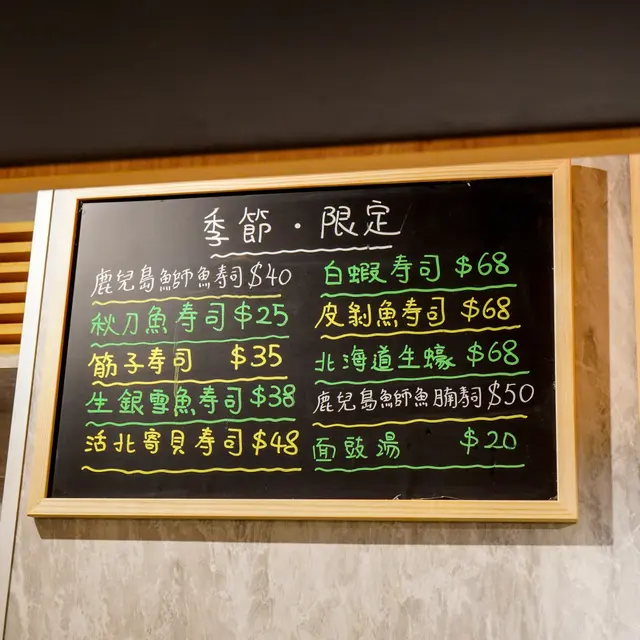 季節・限定
鹿兒島鰤魚寿司 $40
秋刀魚寿司 $25
筋子寿司 $35
生銀雪魚寿司 $38
活北寄貝寿司 $48
白蝦寿司 $68
皮剝魚寿司 $68
北海道生蠔 $68
鹿兒島鰤魚腩寿司 $50
面豉湯 $20